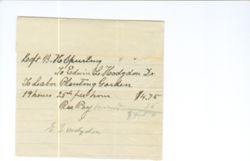 Capt B. H. Spurling
To Edwin L. Hodgdon Dr
To Labor Planting Garden
19 hours 25¢ per hour $4.75
Rec Pay
E L Hodgdon